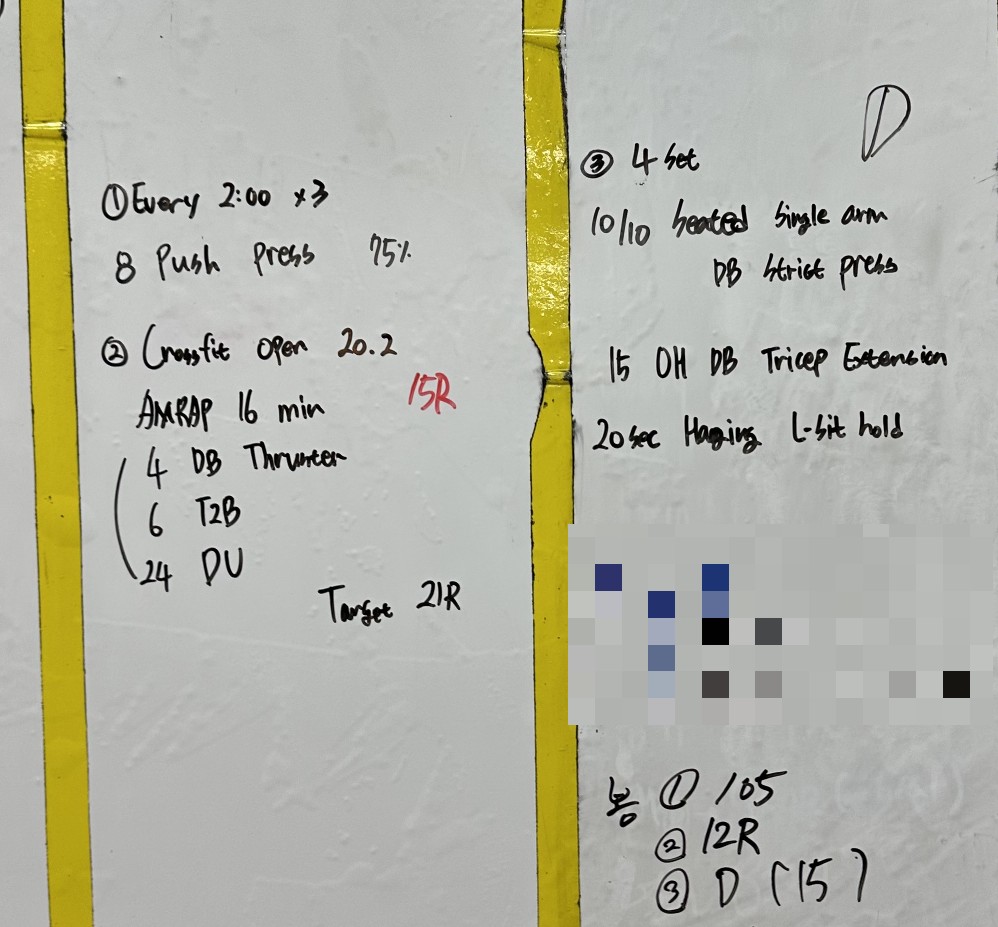 ① Every 2:00 x3
8 Push Press 75%
② Crossfit Open 20.2
15R
AMRAP 16 min
4 DB Thruster
6 T2B
24 DU
Target 21R
D
③ 4 Set
10/10 Seated Single arm
DB Strict press
15 OH DB Tricep Extension
20sec Haging L-sit hold
봉 ① 105
② 12R
③ D (15)